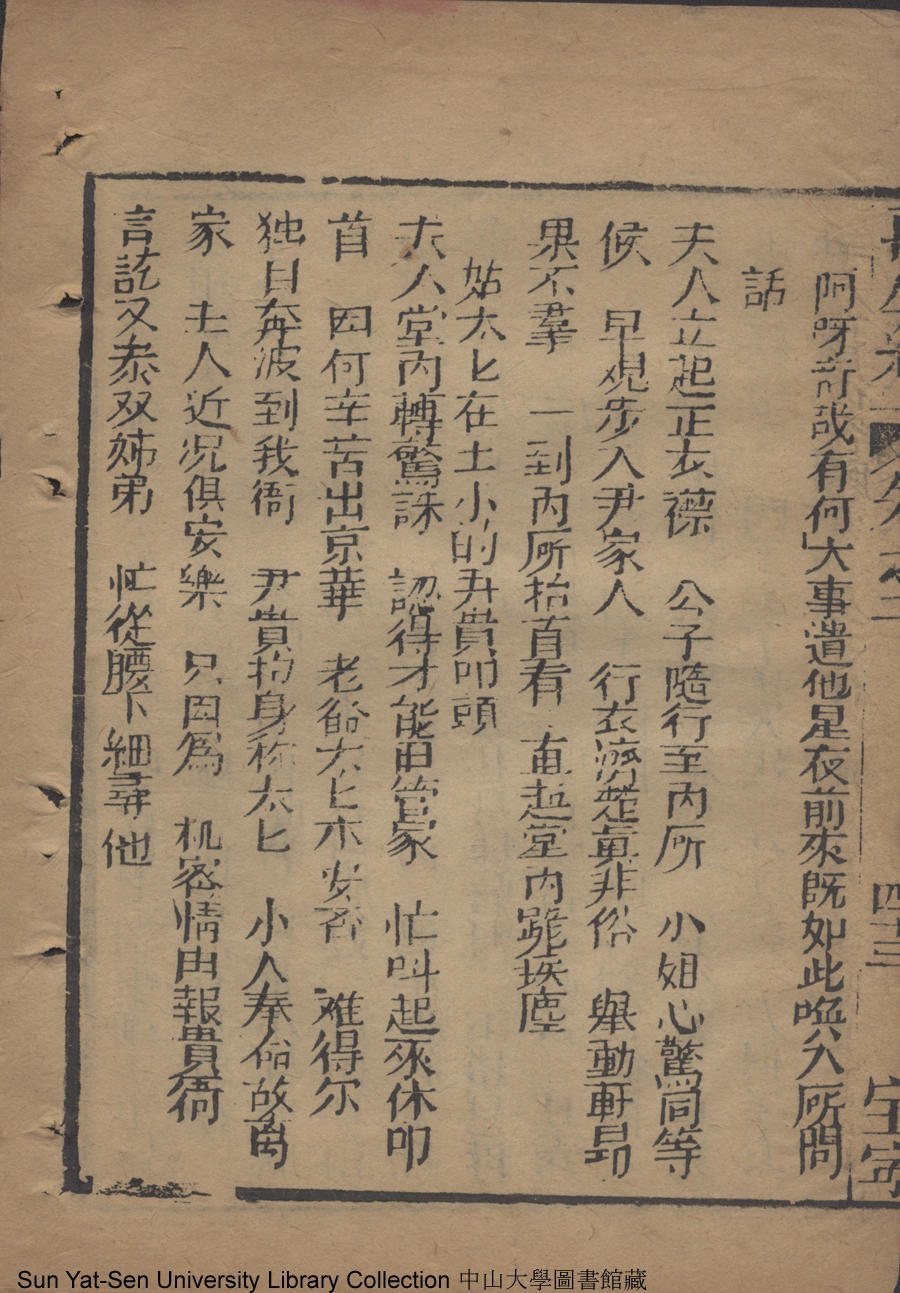 阿呀奇哉有何大事遣他星夜前來既如此喚入厛問
話
夫人立起正衣 公子隨行至内所 小姐心驚同等
候 早覌步入尹家人 行衣 楚真非俗 舉動軒昂
果不羣 一到内厛抬首看 直 堂内跪埃塵
姑太匕在上小的尹貴叩頭
夫人堂内轉驚訝 認得才能田管家 忙呌起來休叩
首 因何辛苦出京華 老爺太匕木安否 难得尔
独自奔波到我衙 尹貴抱身称太匕 小人奉 故
家 主人近况俱安樂 只因爲 机密情由報貴衙
言訖又叅双姊弟 忙從腰下細尋他
四十三
Sun Yat-Sen University Library Collection 中山大學圖書館藏